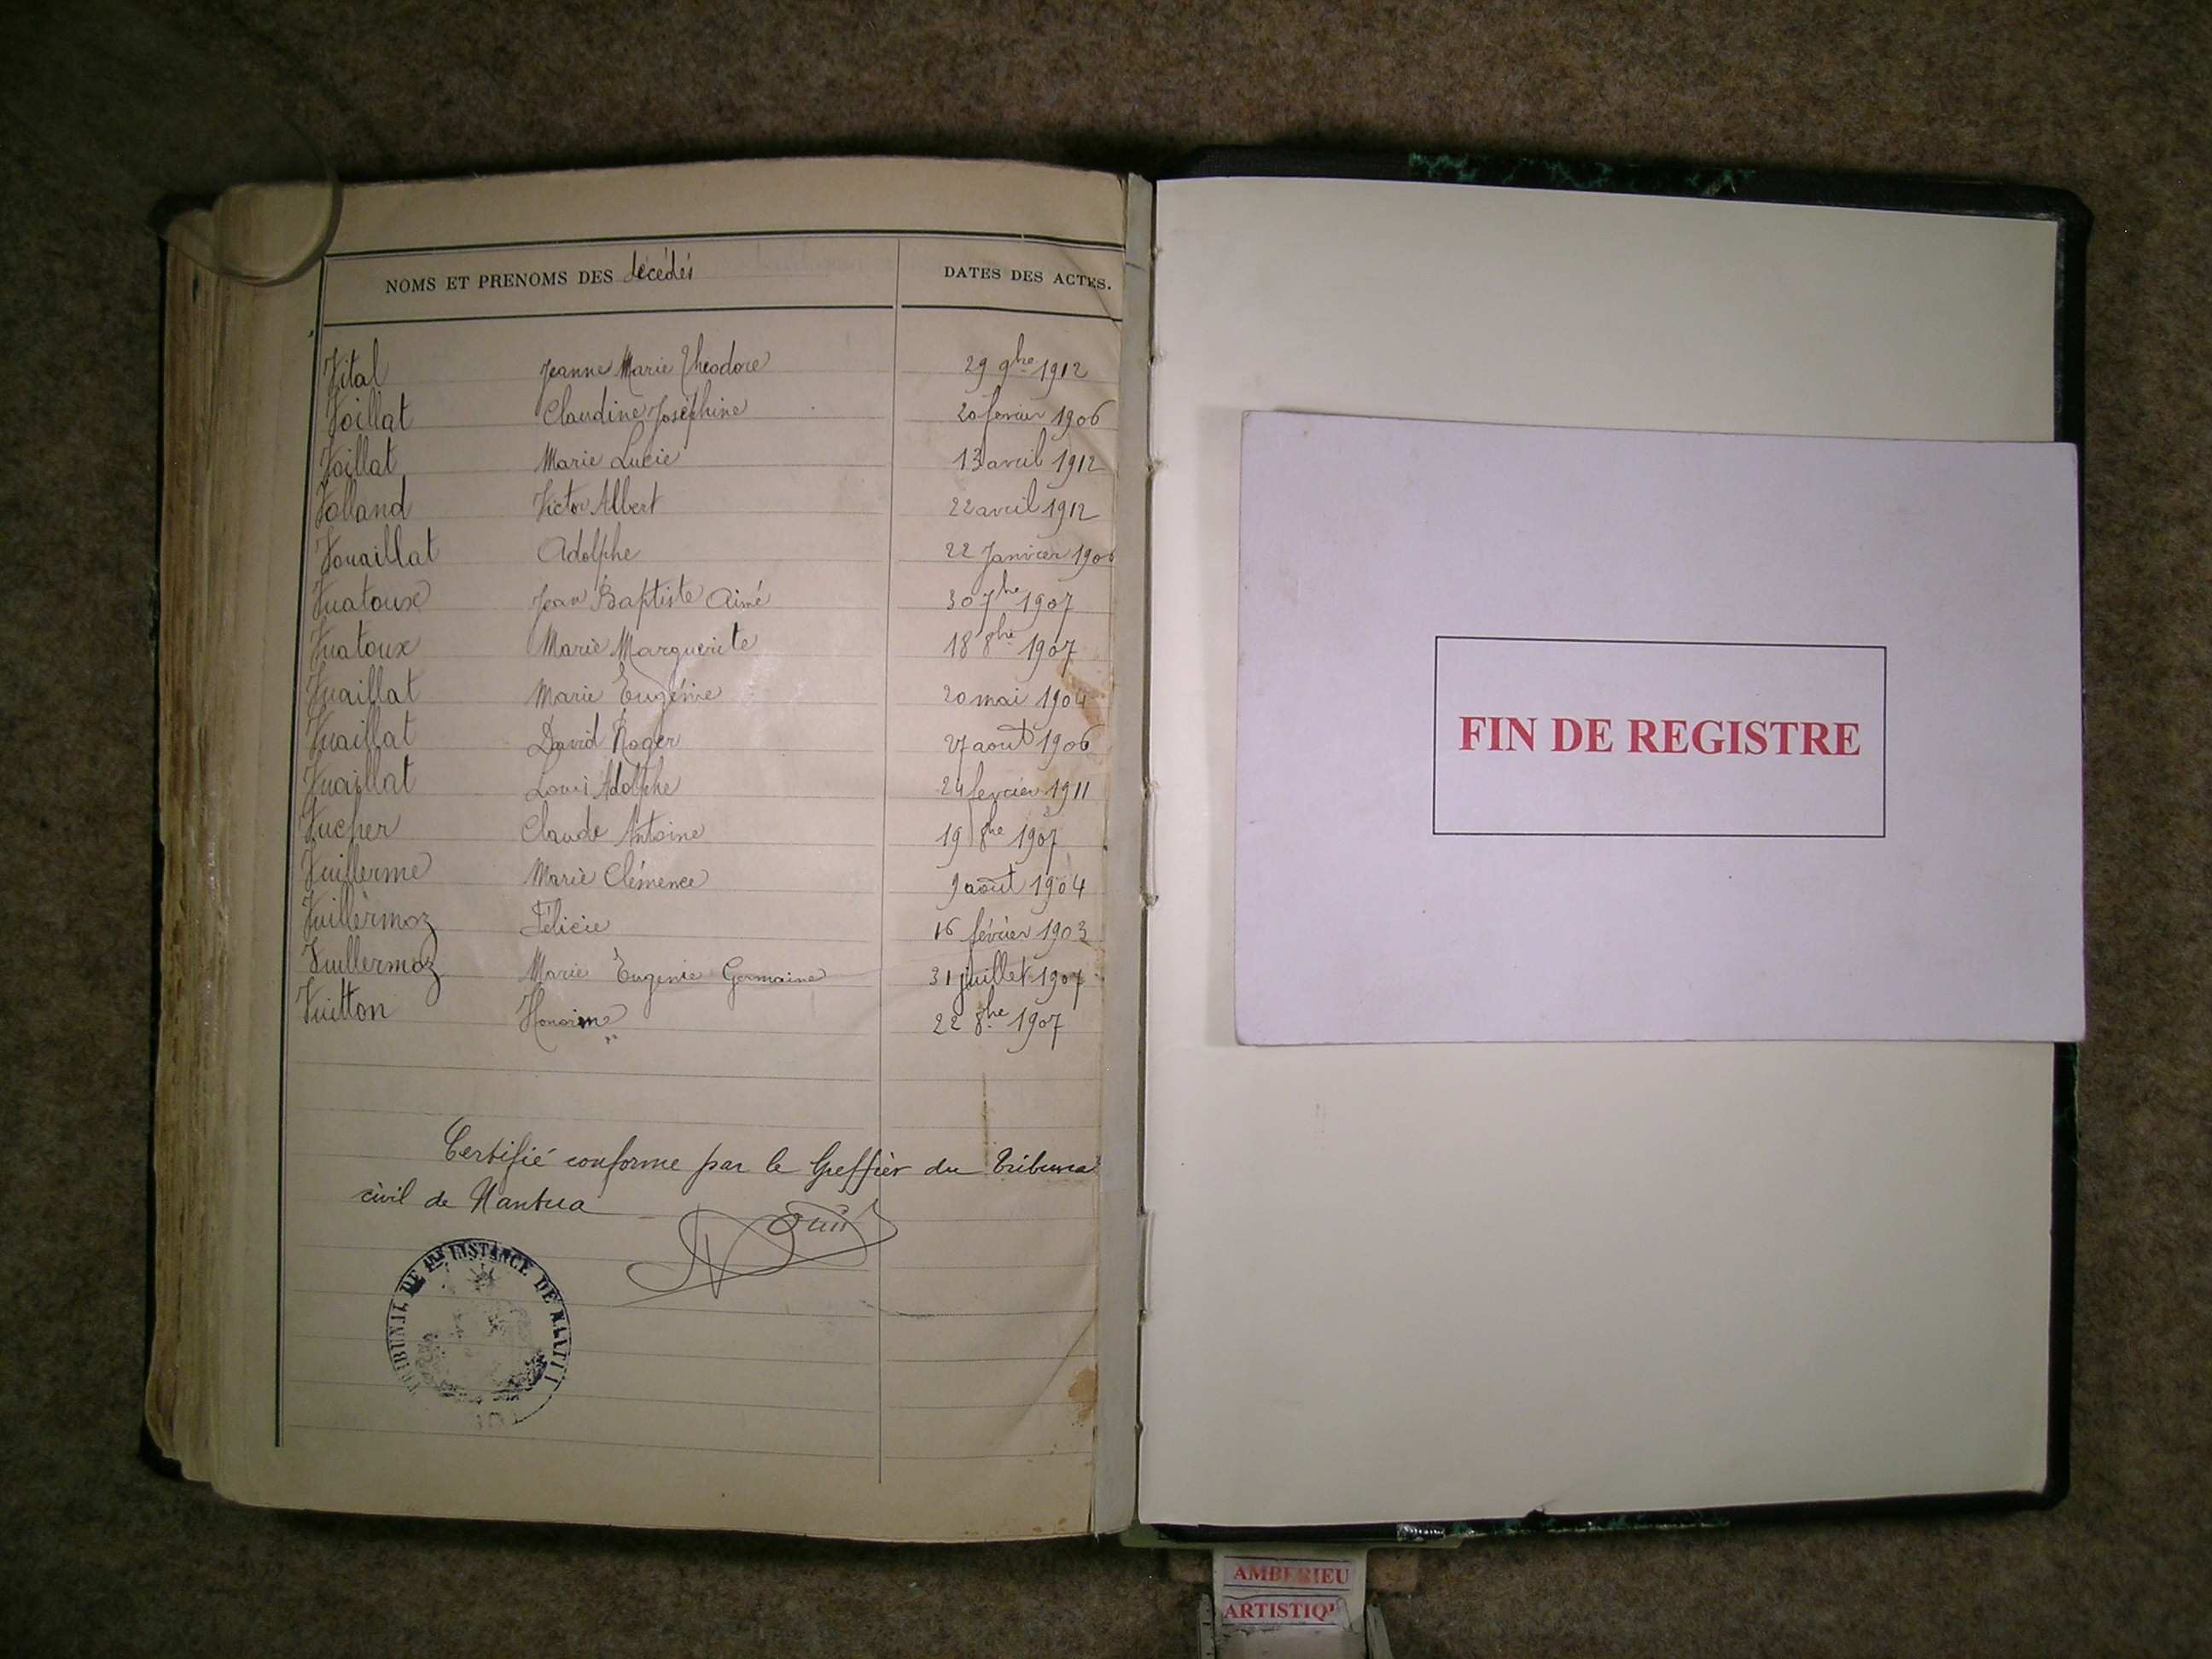 NOMS ET PRENOMS DES décédés DATES DES ACTES.
Vital Jeanne Marie Théodore 29 9bre 1912
Voillat Claudine Joséphine 20 fevrier 1906
Voillat Marie Lucie 13 avril 1912
Volland Victor Albert 22 avril 1912
Vouaillat Adolphe 22 Janvier 1906
Vuatoux Jean Baptiste Aimé 30 7bre 1907
Vuatoux Marie Marguerite 18 8bre 1907
Vuaillat Marie Eugénie 20 mai 1904
Vuaillat David Roger 27 aout 1906
Vuaillat Louis Adolphe 24 fevrier 1911
Vucher Claude Antoine 19 8bre 1907
Vuillerme Marie Clémence 9 août 1904
Vuillermoz Félicie 16 février 1903
Vuillermoz Marie Eugenie Germaine 31 juillet 1907
Vuitton Honorine 22 8bre 1907
Certifié conforme par le Greffier du Tribunal
civil de Nantua
TRIBUNAL DE 1RE INSTANCE DE NANTUA
FIN DE REGISTRE
AMBERIEU
ARTISTIQU